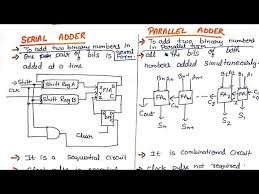 SERIAL ADDER
→ To add two binary numbers in serial form.
→ One pair of bits is added at a time
Shift
CLK
Shift Reg A
Shift Reg B
F/A
Clear
→ It is a sequential Circuit
PARALLEL ADDER
→ To add two binary numbers in Parallel form
→ add all the bits of both numbers added simultaneously
Bn An
B2 A2
B1 A1
FAn
FA2
FA1
Cout
Cin
Sn
S2
S1
→ It is Combinational Circuit
Clock pulse not required